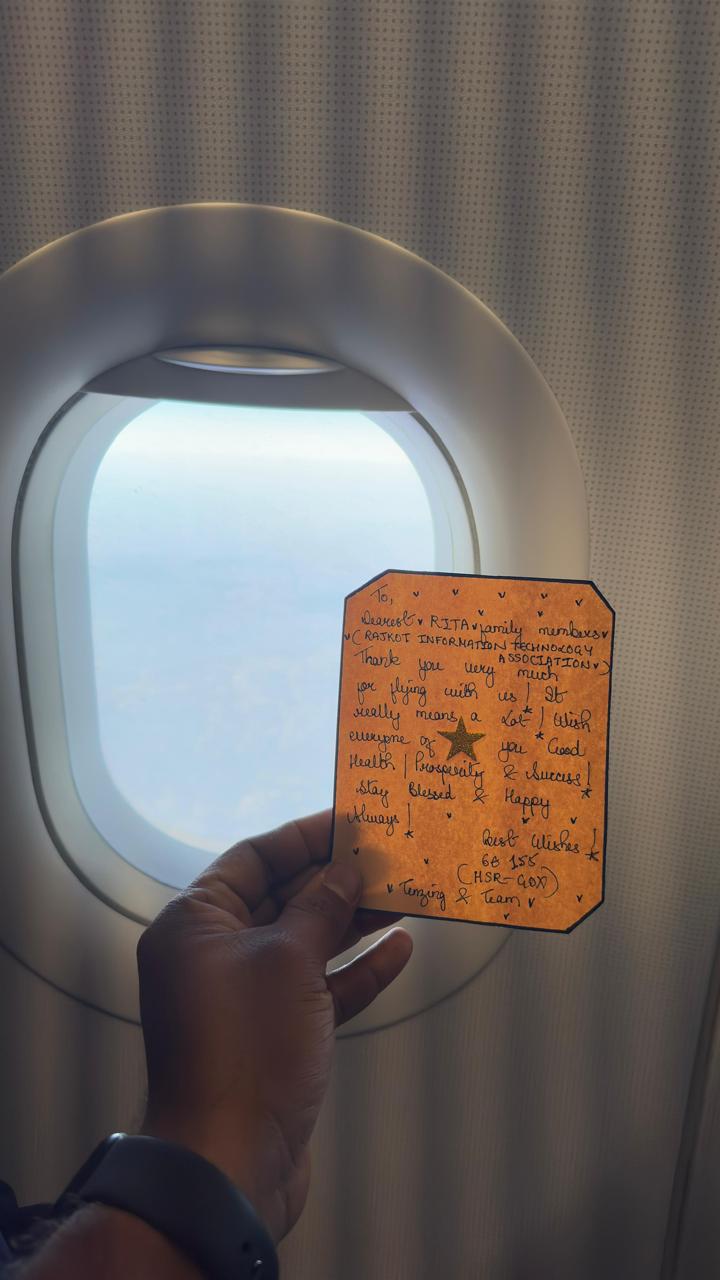 To,
Dearest RITA family members
(RAJKOT INFORMATION TECHNOLOGY
ASSOCIATION)
Thank you very much
for flying with us! It
really means a Lot! Wish
everyone of you Good
Health | Prosperity & Success!
Stay Blessed & Happy
Always!
Best Wishes!
6E 155
(HSR-GOX)
Tenzing & Team